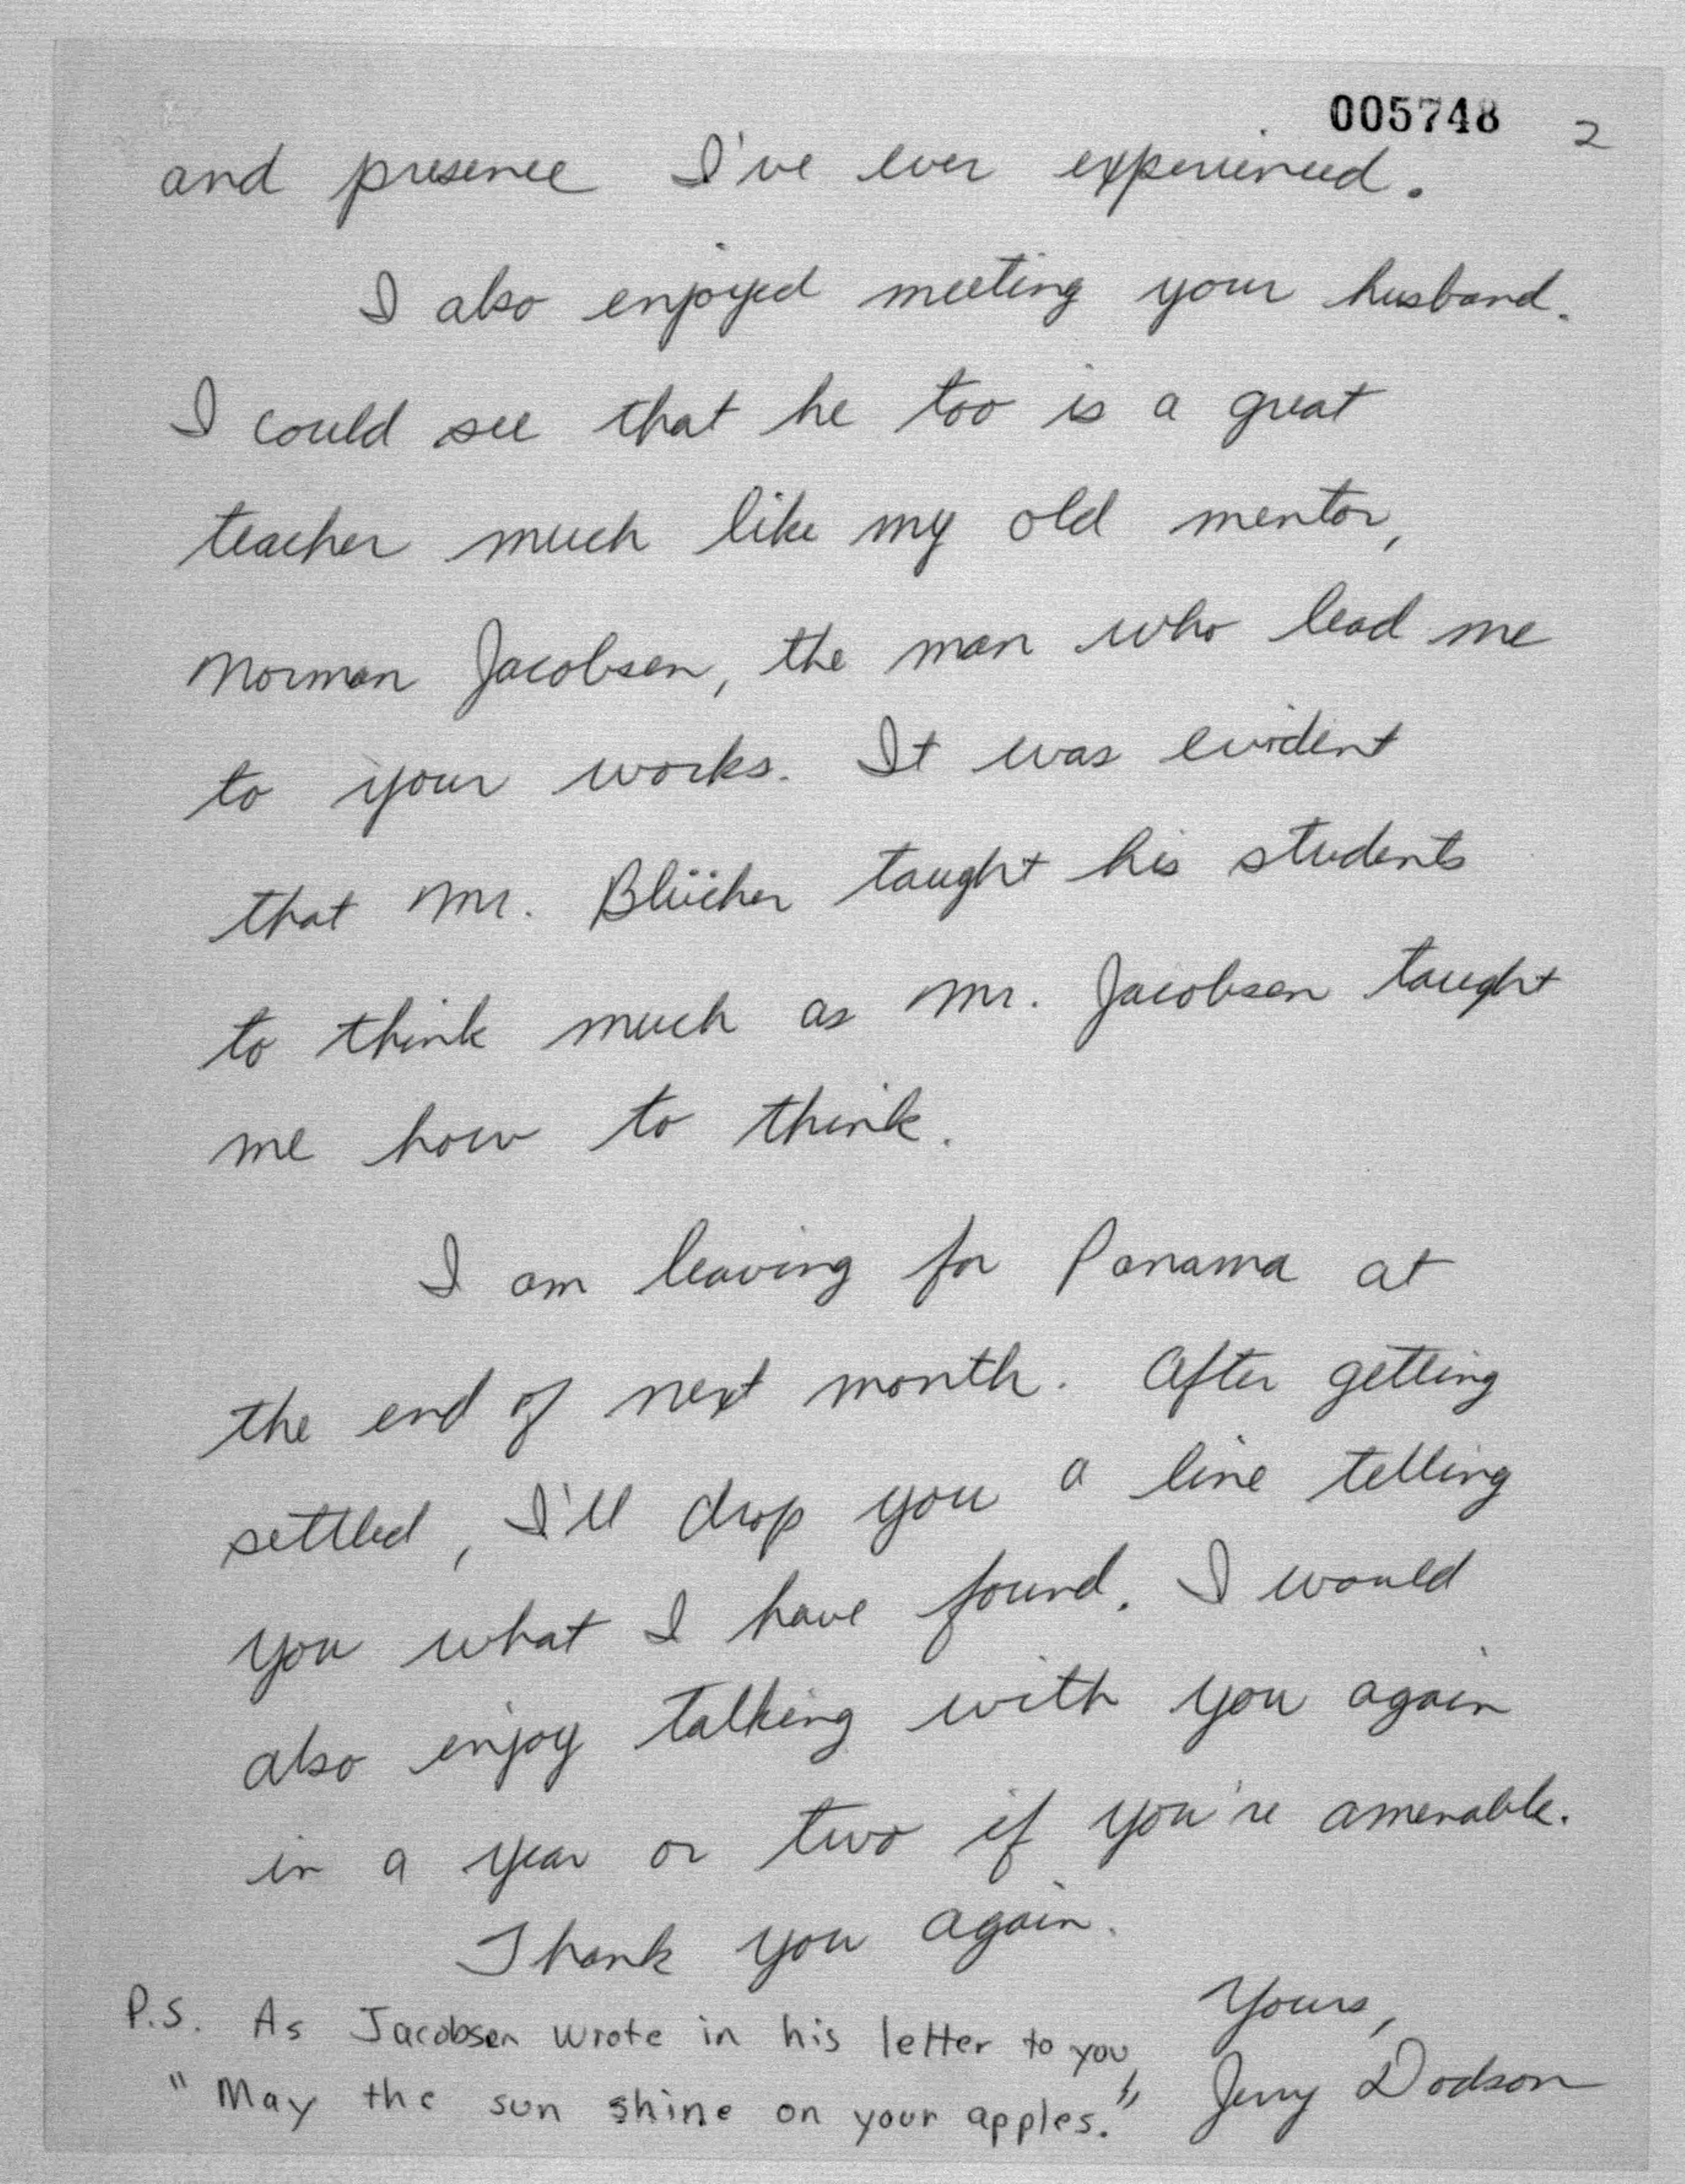 005748 2
and presence I've ever experienced.
I also enjoyed meeting your husband.
I could see that he too is a great
teacher much like my old mentor,
Norman Jacobsen, the man who lead me
to your works. It was evident
that Mr. Blücher taught his students
to think much as Mr. Jacobsen taught
me how to think.
I am leaving for Panama at
the end of next month. After getting
settled, I'll drop you a line telling
you what I have found. I would
also enjoy talking with you again
in a year or two if you're amenable.
Thank you again.
Yours,
Jerry Dodson
P.S. As Jacobsen wrote in his letter to you,
"May the sun shine on your apples."